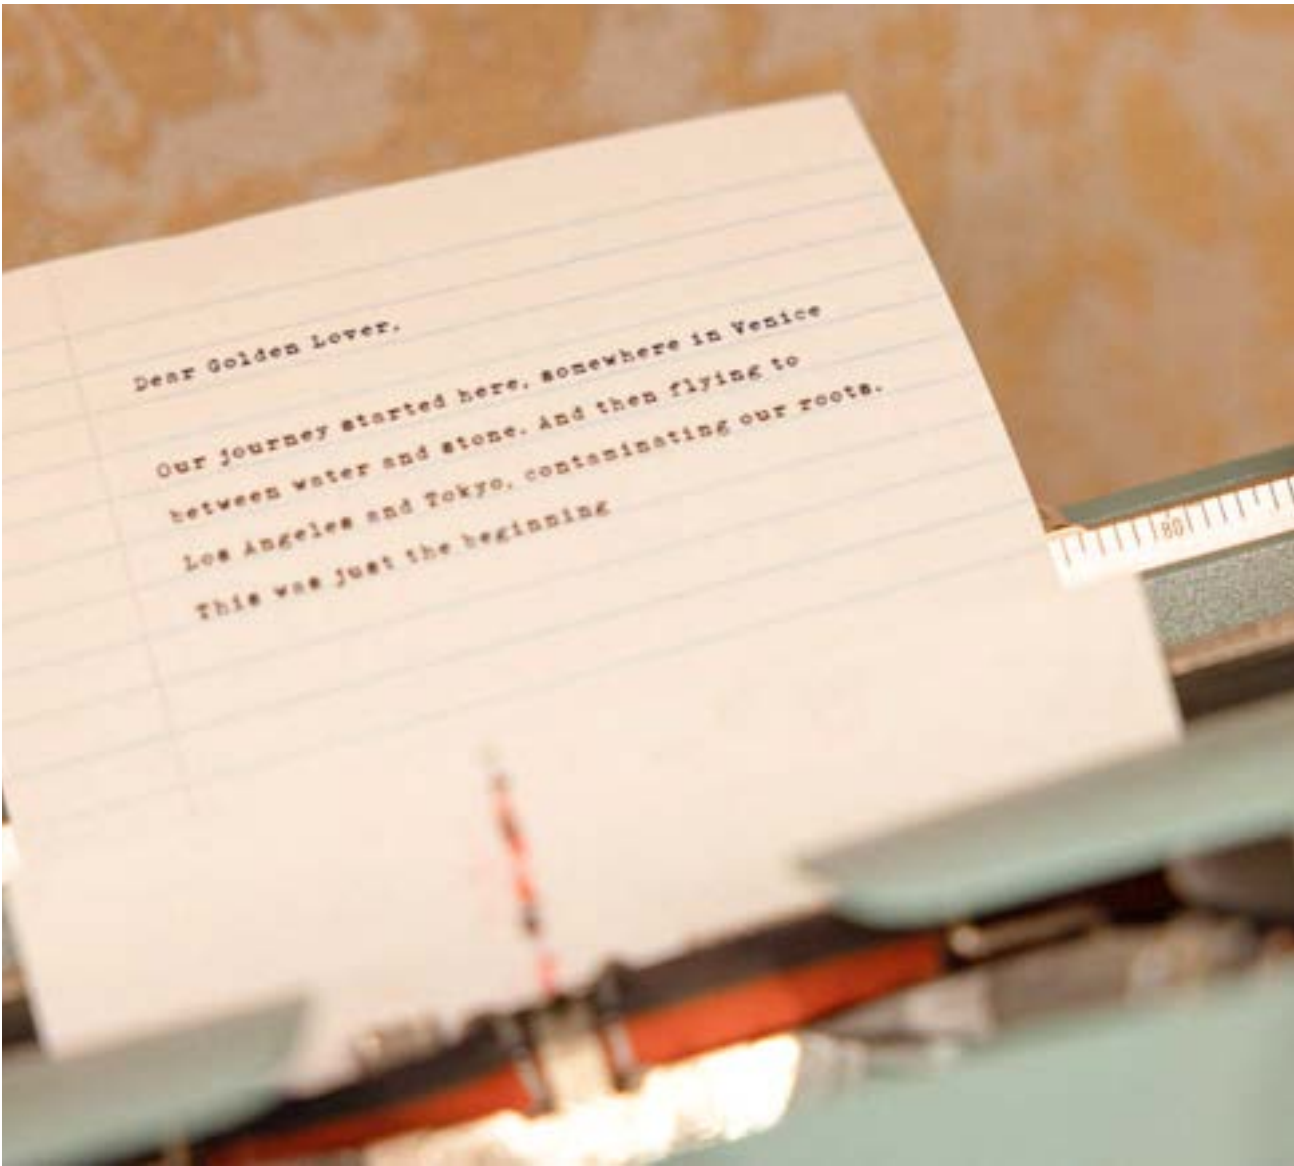 Dear Golden Lover,
Our journey started here, somewhere in Venice
between water and stone. And then flying to
Los Angeles and Tokyo, contaminating our roots.
This was just the beginning
80